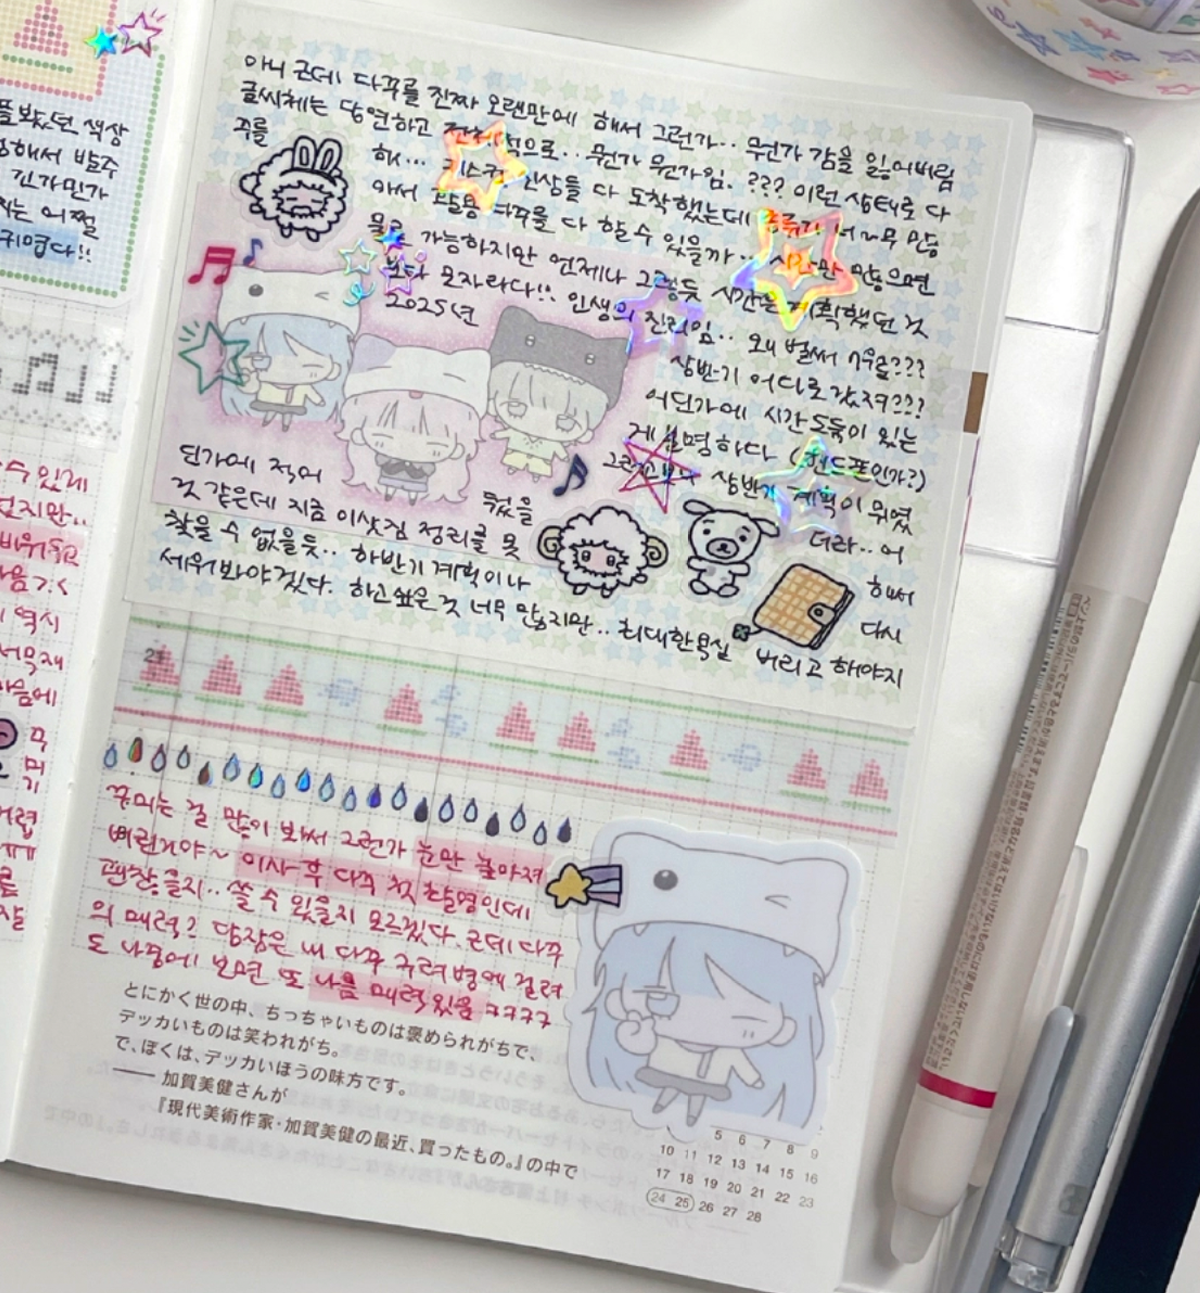 아니 근데 다꾸를 진짜 오랜만에 해서 그런가.. 뭔가 감을 잃어버림
글씨체는 당연하고 전체적으로.. 뭔가 뭔가임. ??? 이런 상태로 다
주를 해... 신상들 다 도착했는데 종류가 너~무 많
아서 다꾸를 다 할 수 있을까... 시간만 많으면
물론 가능하지만 언제나 그렇듯 시간은 계획했던 것
보다 모자라다!! 인생의 진리임.. 왜 벌써 7월???
2025년 상반기 어디로 갔져???
어딘가에 시간 도둑이 있는
게 분명하다 (핸드폰인가?)
그러고보니 상반기 계획이 뭐였
더라.. 어
딘가에 적어 뒀을
것 같은데 지금 이삿짐 정리를 못 해서
찾을 수 없을듯.. 하반기 계획이나 다시
세워봐야겠다. 하고싶은 것 너무 많지만.. 최대한 욕심 버리고 해야지
21
꾸미는 걸 많이 봐서 그런가 눈만 높아져
버린거야~ 이사 후 다꾸 첫 촬영인데
괜찮을지.. 쓸 수 있을지 모르겠다. 근데 다꾸
의 매력? 당장은 내 다꾸 구려병에 걸려
도 나중에 보면 또 나름 매력있음 ㅋㅋㅋㅋ
とにかく世の中、ちっちゃいものは褒められがちで、
デッカいものは笑われがち。
で、ぼくは、デッカいほうの味方です。
—— 加賀美健さんが
『現代美術作家・加賀美健の最近、買ったもの。』の中で
5 6 7 8 9
10 11 12 13 14 15 16
17 18 19 20 21 22 23
24 25 26 27 28
색상
해서 발주
긴가민가
는 어쩔
귀엽다!!
수 있게
지만..
비워두고
역시